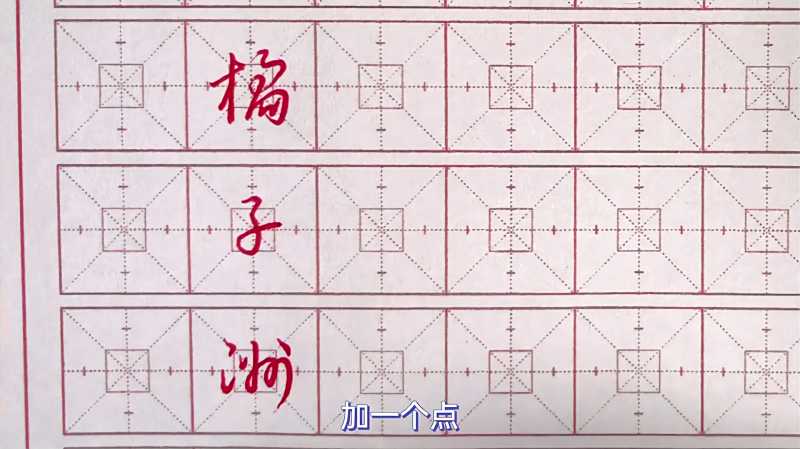 橘
子
洲
加一个点